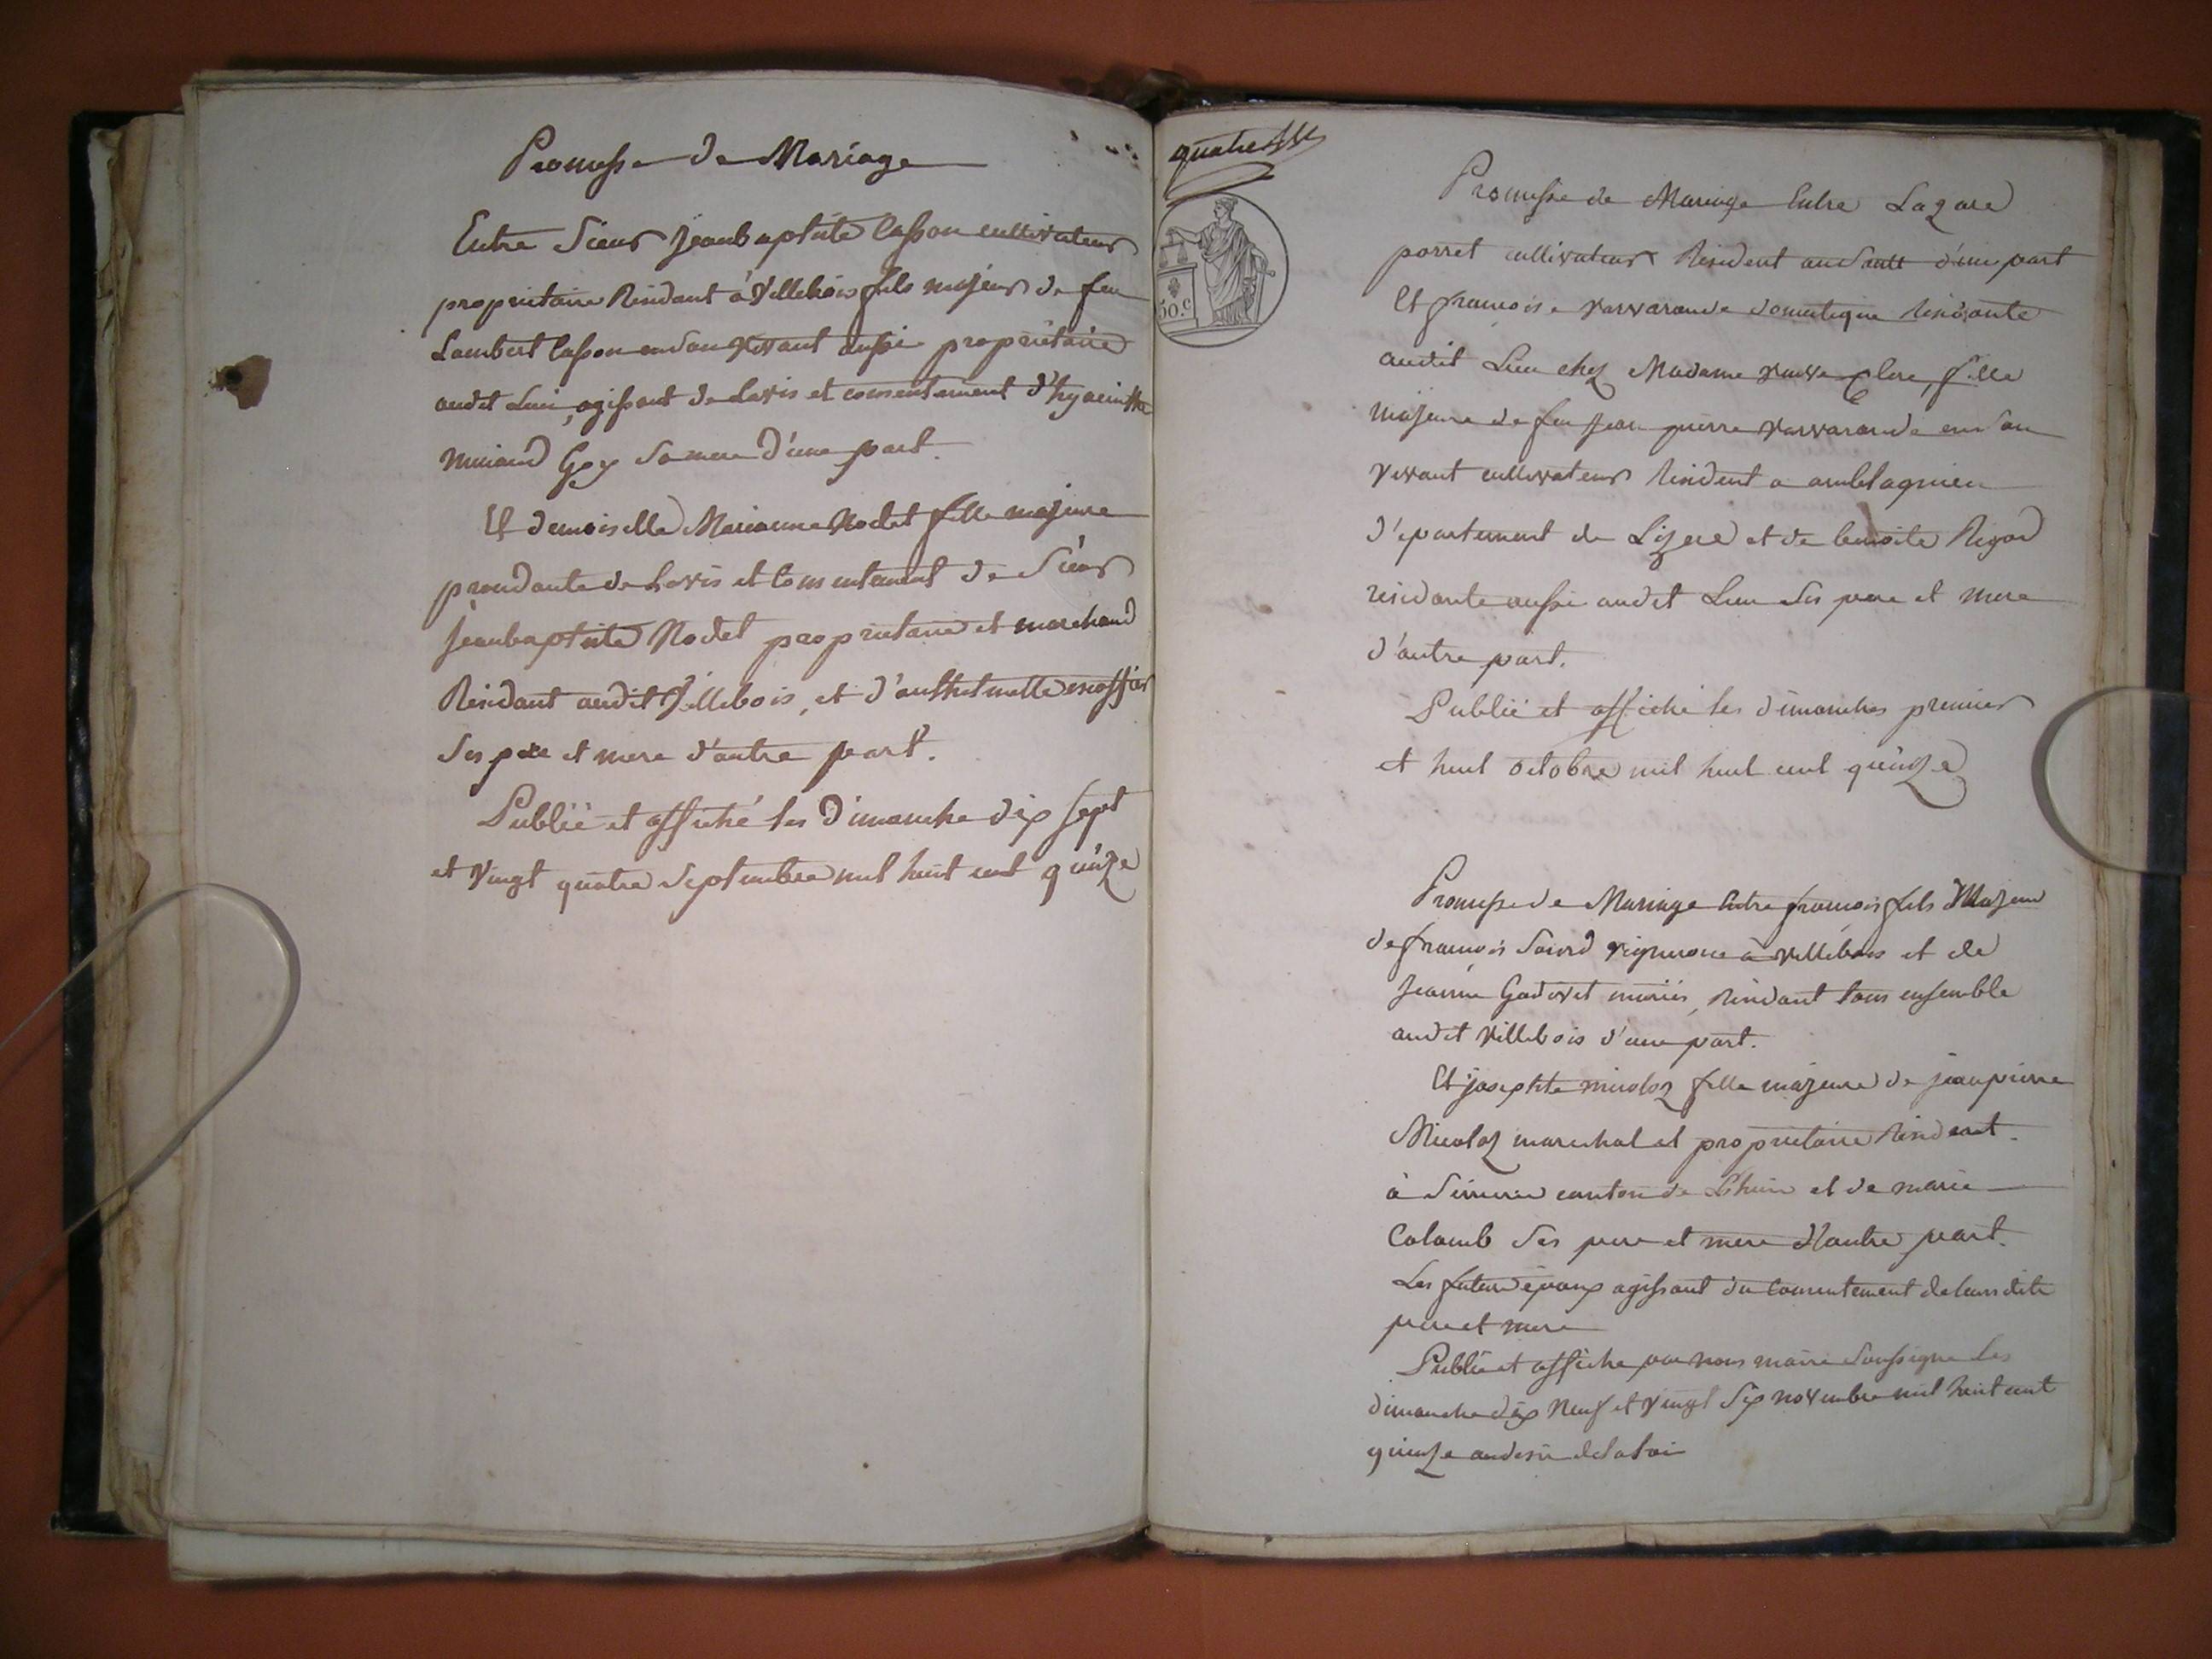 Promesse de Mariage
Entre Sieur jeanbaptiste Casson cultivateur
proprietaire Residant à Villebois fils majeur de feu
Lambert Casson en son vivant aussi proprietaire
audit Lieu, agissant de Lavis et consentement d'hyacinthe
Goy sa mere d'une part.
Et demoiselle Marianne Nodet fille majeure
prendante de Lavis et Consentement de Sieur
Jeanbaptiste Nodet proprietaire et marchand
Residant audit Villebois, et d'anthelmette
ses pere et mere d'autre part.
Publié et affiché les Dimanche dix sept
et Vingt quatre Septembre mil huit cent quinze
quatre
50.c
Promesse de Mariage Entre Lazare
porret cultivateur Resident d'une part
Et francoise varvarande domestique Residante
audit Lieu chez Madame veuve Clerc, fille
majeure de feu Jean pierre varvarande en son
vivant cultivateur Resident a amblagnieu
d'epartement de Lizere et de benoite Rigod
residante aussi audit Lieu ses pere et mere
d'autre part.
Publié et affiché les dimanches premier
et huit octobre mil huit cent quinze
Promesse de Mariage Entre francois fils Majeur
de francois Sourd vigneron à villebois et de
Jeanne Godovet mariés, Residant tous ensemble
audit Villebois d'une part.
Et josephte micoloz fille majeure de jeanpierre
Micoloz marechal et proprietaire Residant
à canton de Lhuis et de marie
Colomb ses pere et mere d'autre part.
Les futurs époux agissant du Consentement de leursdits
pere et mere
Publié et affiche par nous maire soussigné les
dimanche dix Neuf et vingt six novembre mil huit cent
quinze au desir de la loi